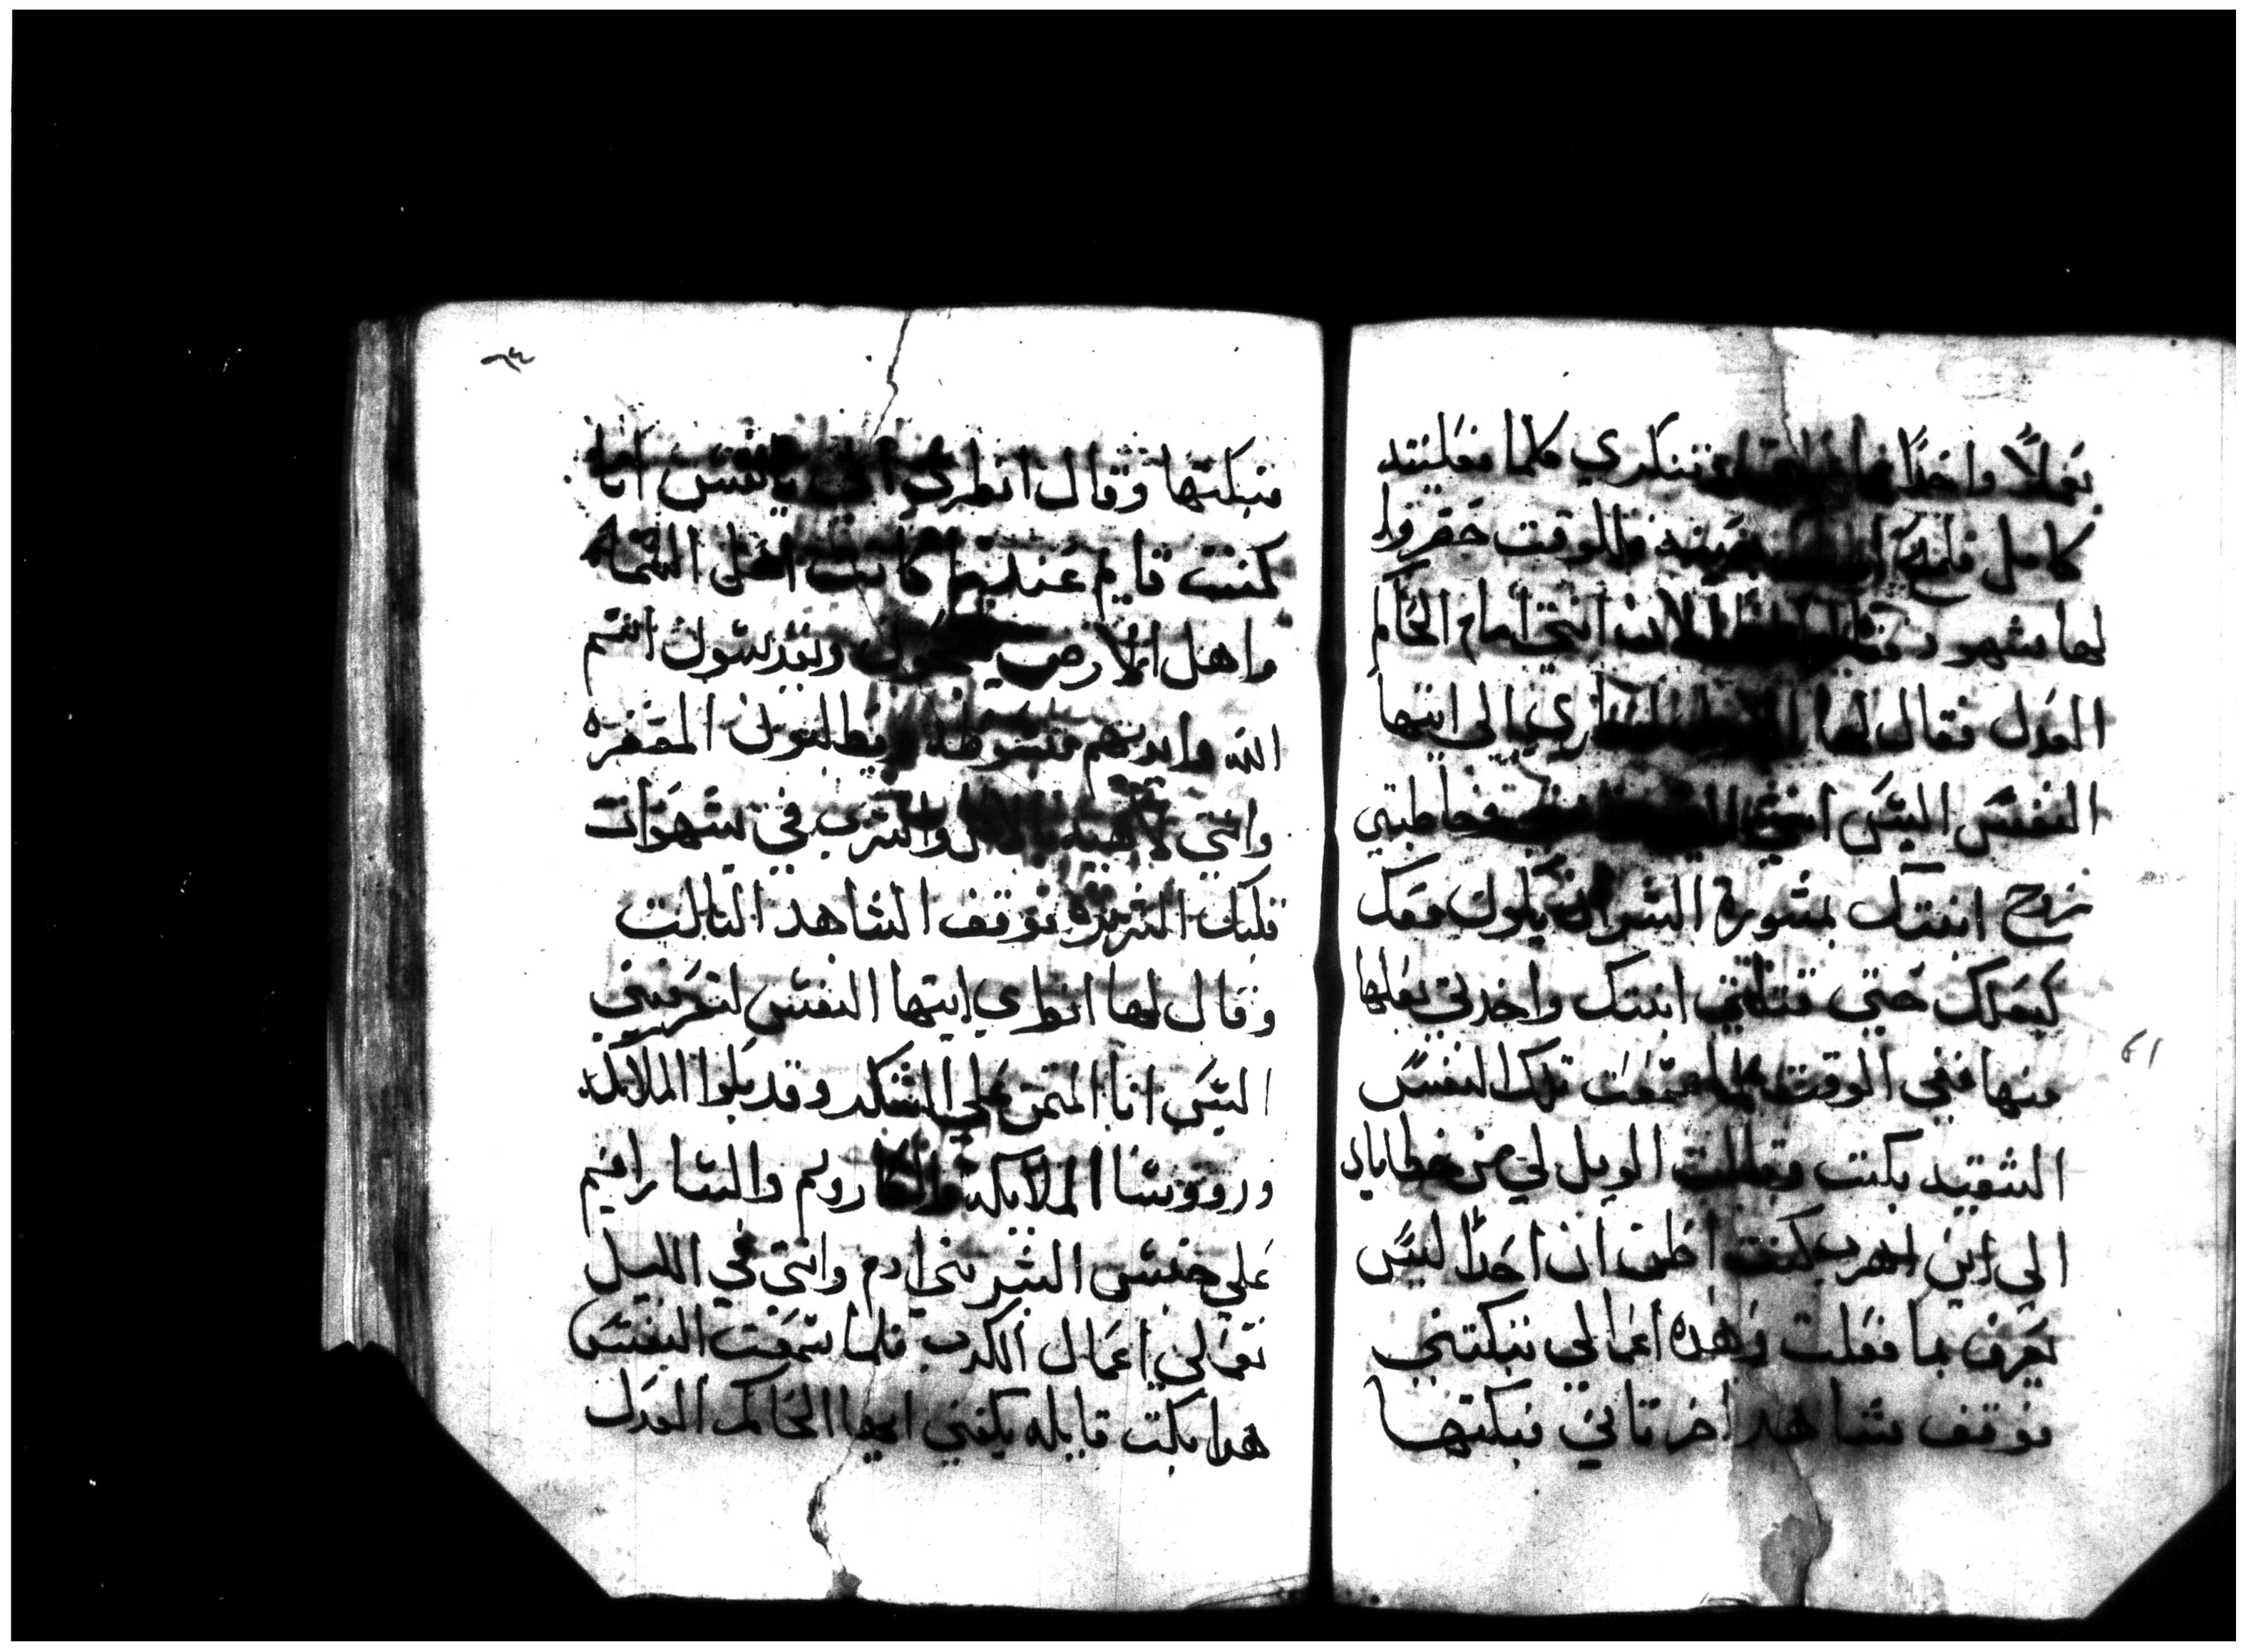 بعملاً واحدًا تنكري كلما فعلتيه
كامل فلم والوقت حضروا
لها شهود الان انتي امام الحاكم
العدل فقال لها يالي ايتها
النفس اليس انتي فخاطبتي
زوج ابنتك بمشورة السو ان يكون معك
كبعلك حتي قتلتي ابنتك واخدتي بعلها
منها ففي الوقت لما سمعت تلك النفس
الشقيه بكت وقالت الويل لي من خطاياي
الي اين اهرب كنت اظن ان احدًا ليس
يعرف بما فعلت وهده اعمالي تبكتني
فوقف شاهد اخر تاني فبكتها
فبكتها وقال انظري الي يا نفس انا
كنت قايم عندما كانت اهل السما
واهل الارض يسبحون ويقدسون اسم
الله وايديهم مبسوطه ويطلبون المغفره
وانتي لاهيه بالاكل والشرب في شهوات
قلبك الشريره فوقف الشاهد التالت
وقال لها انظري ايتها النفس لتعرفيني
اليس انا المتمن علي الشكر وقد بلوا الملايكه
ورووسا الملايكه والشاروبيم والسارافيم
علي جنس البشر بني ادم وانتي في الليل
تعملي اعمال الكدب فلما سمعت النفس
هدا بكت قايله يكفني ايها الحاكم العدل